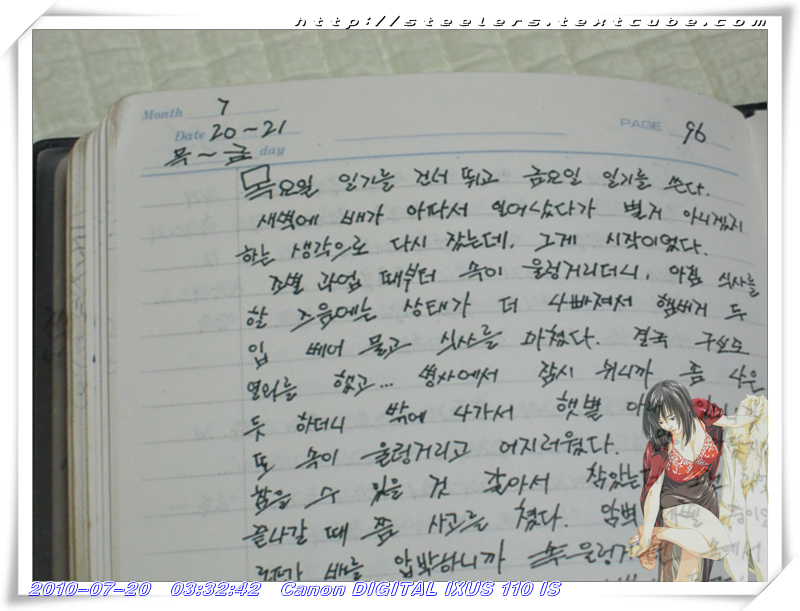 http://steelers.textcube.com
Month 7
Date 20~21
PAGE 96
목~금 day
목요일 일기를 건너 뛰고 금요일 일기를 쓴다.
새벽에 배가 아파서 일어났다가 별거 아니겠지
하는 생각으로 다시 잤는데. 그게 시작이었다.
조별 과업 때부터 속이 울렁거리더니, 아침 식사를
할 즈음에는 상태가 더 나빠져서 햄버거 두
입 베어 물고 식사를 마쳤다. 결국 구보도
열외를 했고... 병사에서 잠시 쉬니까 좀 나은
듯 하더니 밖에 나가서 햇볕 아래
또 속이 울렁거리고 어지러웠다.
참을 수 있을 것 같아서 참았는데
끝나갈 때 쯤 사고를 쳤다. 암벽
배를 압박하니까 속 울렁
2010-07-20 03:32:42 Canon DIGITAL IXUS 110 IS